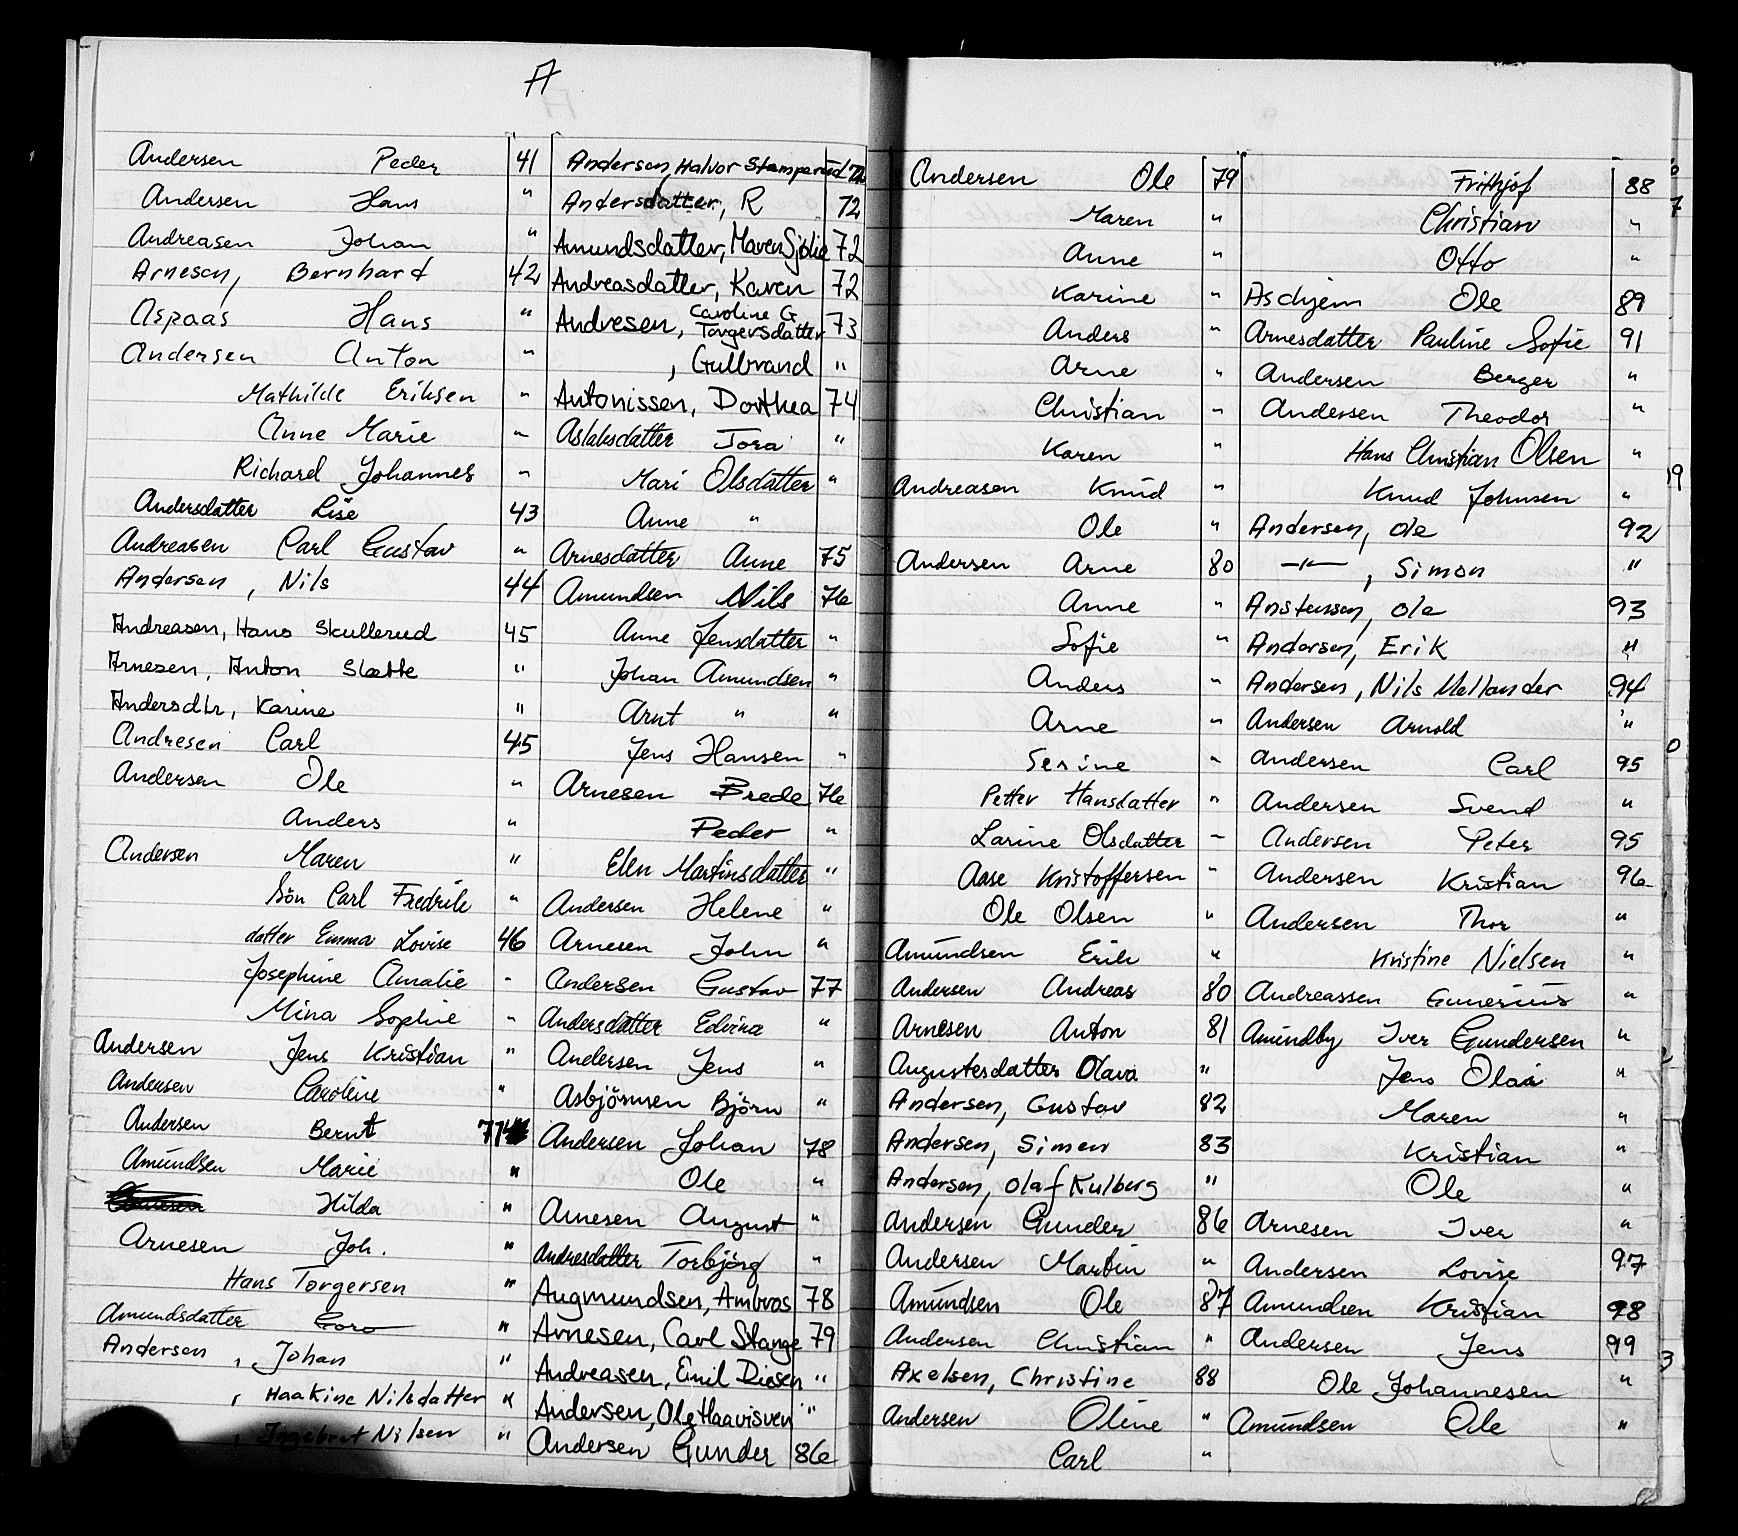 A
Andersen Peder 41
Andersen Hans "
Andreasen Johan "
Arnesen, Bernhard 42
Aspaas Hans "
Andersen Anton "
Mathilde Eriksen "
Anne Marie "
Richard Johannes "
Andersdatter Lise 43
Andreasen Carl Gustav "
Andersen, Nils 44
Andreasen, Hans Skullerud 45
Arnesen, Anton Slette "
Andersdtr, Karine "
Andresen Carl 45
Andersen Ole "
Anders "
Andersen Maren "
Sön Carl Fredrik "
datter Emma Lovise 46
Josephine Amalie "
Mina Sophie "
Andersen Jens Kristian "
Andersen Caroline "
Andersen Bernt
Amundsen Marie "
Hilda "
Arnesen Joh. "
Hans Torgersen "
Amundsdatter Goro "
Andersen, Johan "
, Haakine Nilsdatter "
, Ingebret Nilsen "
Andersen, Halvor Stamperud 72
Andersdatter, R 72
Amundsdatter, Maren Sjölie 72
Andreasdatter, Karen 72
Andresen, Caroline G Torgersdatter 73
, Gulbrand "
Antonissen, Dorthea 74
Aslaksdatter Tora "
Mari Olsdatter "
Anne "
Arnesdatter Anne 75
Amundsen Nils 76
Anne Jensdatter "
Johan Amundsen "
Arnt " "
Jens Hansen "
Arnesen Brede 76
Peder "
Elen Martinsdatter "
Andersen Helene "
Arnesen John "
Andersen Gustav 77
Andersdatter Edvina "
Andersen Jens "
Asbjörnsen Björn "
Andersen Johan 78
Ole "
Arnesen August "
Andresdatter Torbjörg "
Augmundsen, Ambros 78
Arnesen, Carl Stange 79
Andreasen, Emil Diesen "
Andersen, Ole Haavisven "
Andersen Gunder 86
Andersen Ole 79
Maren "
Anne "
Karine "
Anders "
Arne "
Christian "
Karen "
Andreasen Knud "
Ole "
Andersen Arne 80
Anne "
Sofie "
Anders "
Arne "
Serine "
Petter Hansdatter "
Larine Olsdatter "
Aase Kristoffersen "
Ole Olsen "
Amundsen Erik "
Andersen Andreas 80
Arnesen Anton 81
Augustesdatter Olava "
Andersen, Gustav 82
Andersen, Simen 83
Andersen, Olaf Kulberg "
Andersen Gunder 86
Andersen Martin "
Amundsen Ole 87
Andersen Christian "
Axelsen, Christine 88
Andersen Oline "
Carl "
Frithjof 88
Christian "
Otto "
Aschjem Ole 89
Arnesdatter Pauline Sofie 91
Andersen Berger "
Andersen Theodor "
Hans Christian Olsen "
Knud Johnsen "
Andersen, Ole 92
—"—, Simon "
Anstensen, Ole 93
Andersen, Erik "
Andersen, Nils Mellander 94
Andersen Arnold "
Andersen Carl 95
Andersen Svend "
Andersen Peter 95
Andersen Kristian 96
Andersen Thor "
Kristine Nielsen "
Andreassen Gunerius "
Amundby Iver Gundersen "
Jens Olai "
Maren "
Kristian "
Ole "
Arnesen Iver "
Andersen Lovise 97
Amundsen Kristian 98
Andersen Jens 99
Ole Johannesen "
Amundsen Ole "